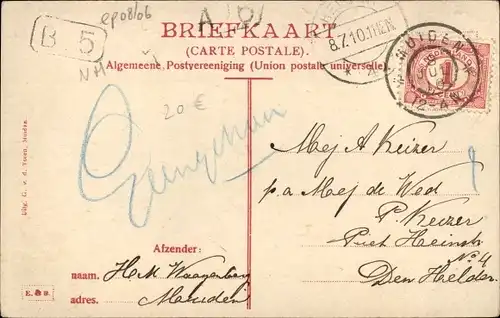 ep08/06
A
B 5
NH
BRIEFKAART
(CARTE POSTALE).
Algemeene Postvereeniging (Union postale universelle).
8.7.10.11-12N.
MUIDEN
12-1N
20 €
Mej A Keizer
p.a Mej de Wed
P. Keizer
Piet Heinstr
No 4
Den Helder
Afzender:
naam. H M Waagenberg
adres. Muiden
Uitg. G. v. d.
E. & B.